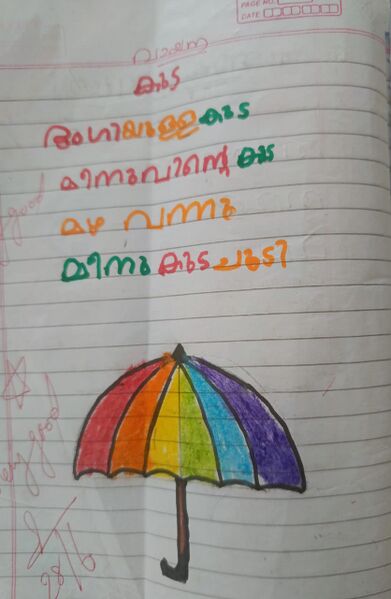 PAGE NO.
DATE
വായന
കുട
ഭംഗിയുള്ള കുട
മിനുവിന്റെ കുട
മഴ വന്നു
മിനു കുട ചൂടി
good
Very good
28/6